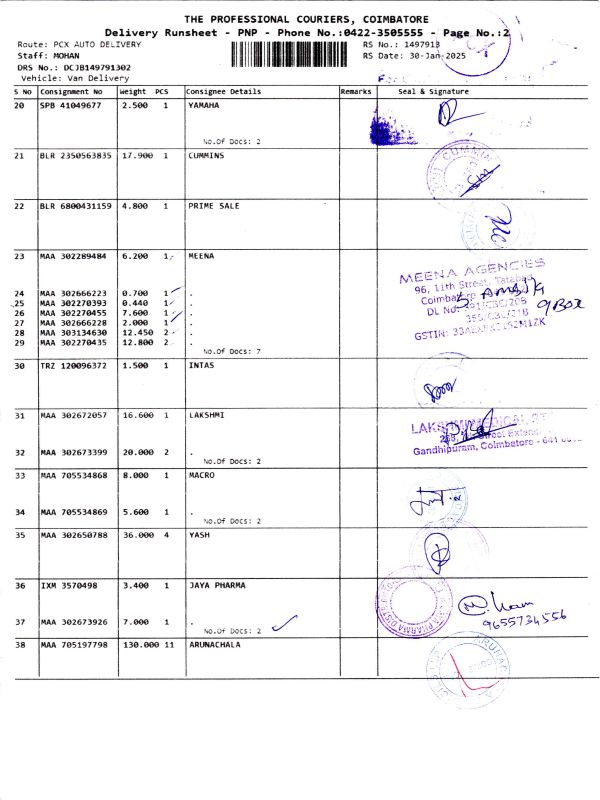 THE PROFESSIONAL COURIERS, COIMBATORE
Delivery Runsheet - PNP - Phone No.:0422-3505555 - Page No.:2
Route: PCX AUTO DELIVERY RS No.: 1497913
Staff: MOHAN RS Date: 30-Jan-2025
DRS No.: DCJB149791302
Vehicle: Van Delivery
S No Consignment No Weight PCS Consignee Details Remarks Seal & Signature
20 SPB 41049677 2.500 1 YAMAHA
No.Of Docs: 2
21 BLR 2350563835 17.900 1 CUMMINS
CUMMIN
22 BLR 6800431159 4.800 1 PRIME SALE
23 MAA 302289484 6.200 1 MEENA
MEENA AGENCIES
96, 11th Street, Tatabad
24 MAA 302666223 0.700 1 .
Coimbatore
25 MAA 302270393 0.440 1 .
DL No:
26 MAA 302270455 7.600 1 .
9 Box
27 MAA 302666228 2.000 1 .
28 MAA 303134630 12.450 2 .
GSTIN:
29 MAA 302270435 12.800 2 .
No.Of Docs: 7
30 TRZ 120096372 1.500 1 INTAS
31 MAA 302672057 16.600 1 LAKSHMI
LAKSHMI MEDICAL
Street Exten
Gandhipuram, Coimbatore - 641
32 MAA 302673399 20.000 2 .
No.Of Docs: 2
33 MAA 705534868 8.000 1 MACRO
34 MAA 705534869 5.600 1 .
No.Of Docs: 2
35 MAA 302650788 36.000 4 YASH
36 IXM 3570498 3.400 1 JAYA PHARMA
37 MAA 302673926 7.000 1 .
9655734556
No.Of Docs: 2
38 MAA 705197798 130.000 11 ARUNACHALA